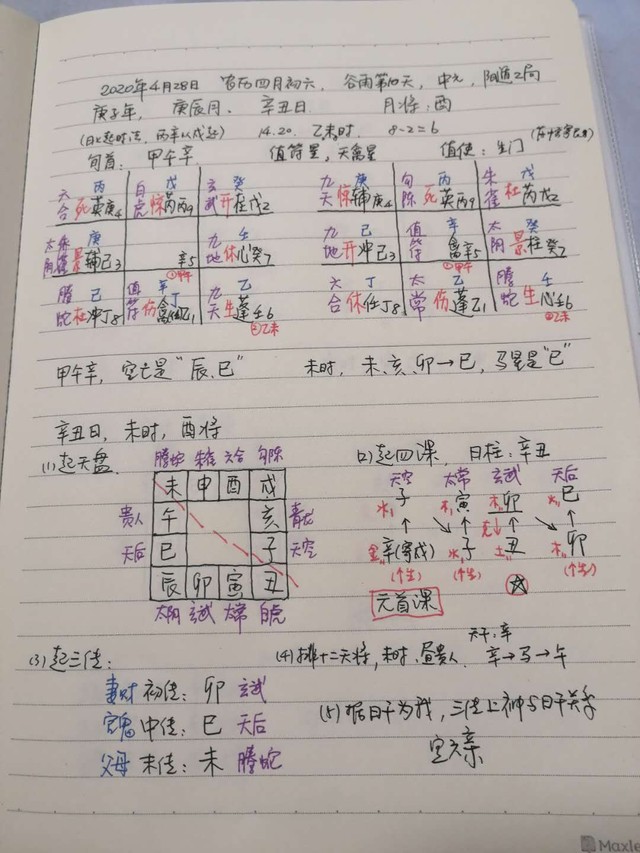 2020年4月28日 农历四月初六, 谷雨第10天, 中元, 阴遁2局
庚子年, 庚辰月, 辛丑日 月将:酉
(日上起时法, 丙辛从戊起) 14.20. 乙未时. 8-2=6
旬首: 甲午辛 值符星, 天禽星 值使: 生门
六 丙 白 戊 玄 癸 九 庚 勾 丙 朱 戊
合死英庚4 虎惊芮丙9 武开柱戊2 天惊辅庚4 陈死英丙9 雀杜芮戊2
太 庚 九 壬 九 己 值 辛 太 癸
阴景辅己3 辛5 地休心癸7 地开冲己3 符禽辛5 阴景柱癸7
①甲午 ①甲午
腾 己 值 辛丁 九 乙 六 丁 太 乙 腾 壬
蛇杜冲丁8 符伤禽任乙1 天生蓬壬6 合休任丁8 常伤蓬乙1 蛇生心壬6
②乙未 ②乙未
甲午辛, 空亡是"辰、巳" 未时, 未、亥、卯→巳, 马星是"巳"
辛丑日, 未时, 酉将
(1)起天盘. 腾蛇 朱雀 六合 勾陈
未 申 酉 戌
贵人 午 亥 青龙
天后 巳 子 天空
辰 卯 寅 丑
太阴 玄武 太常 白虎
(2)起四课. 日柱:辛丑
天空 太常 玄武 天后
水 子 木 寅 木 卯 火 巳
克
金 辛(寄戌) 水 子 土 丑 木 卯
(下生) (下生) (下生)
元首课
(3)起三传:
妻财 初传: 卯 玄武
官鬼 中传: 巳 天后
父母 末传: 未 腾蛇
(4)排十二天将, 未时、昼贵人. 天干:辛 辛→马→午
(5)据日干为我, 三传上神与日干关系
定六亲
Maxle